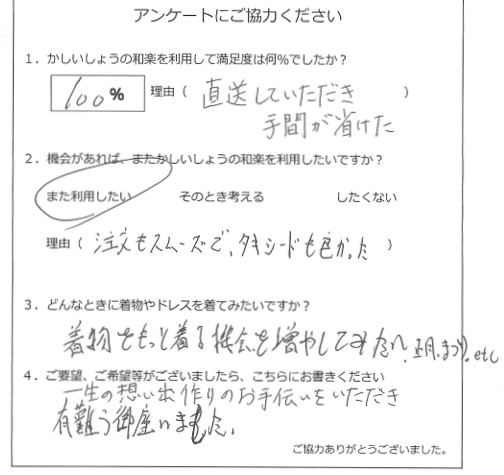 アンケートにご協力ください
1．かしいしょうの和楽を利用して満足度は何%でしたか？
100% 理由（ 直送していただき ）
手間が省けた
2．機会があれば、またかしいしょうの和楽を利用したいですか？
また利用したい そのとき考える したくない
理由（ 注文もスムーズで、タキシードも良かった ）
3．どんなときに着物やドレスを着てみたいですか？
着物をもっと着る機会を増やしてみたい。正月、まつり。etc
4．ご要望、ご希望等がございましたら、こちらにお書きください
一生の想い出作りのお手伝いをいただき
有難う御座いました。
ご協力ありがとうございました。